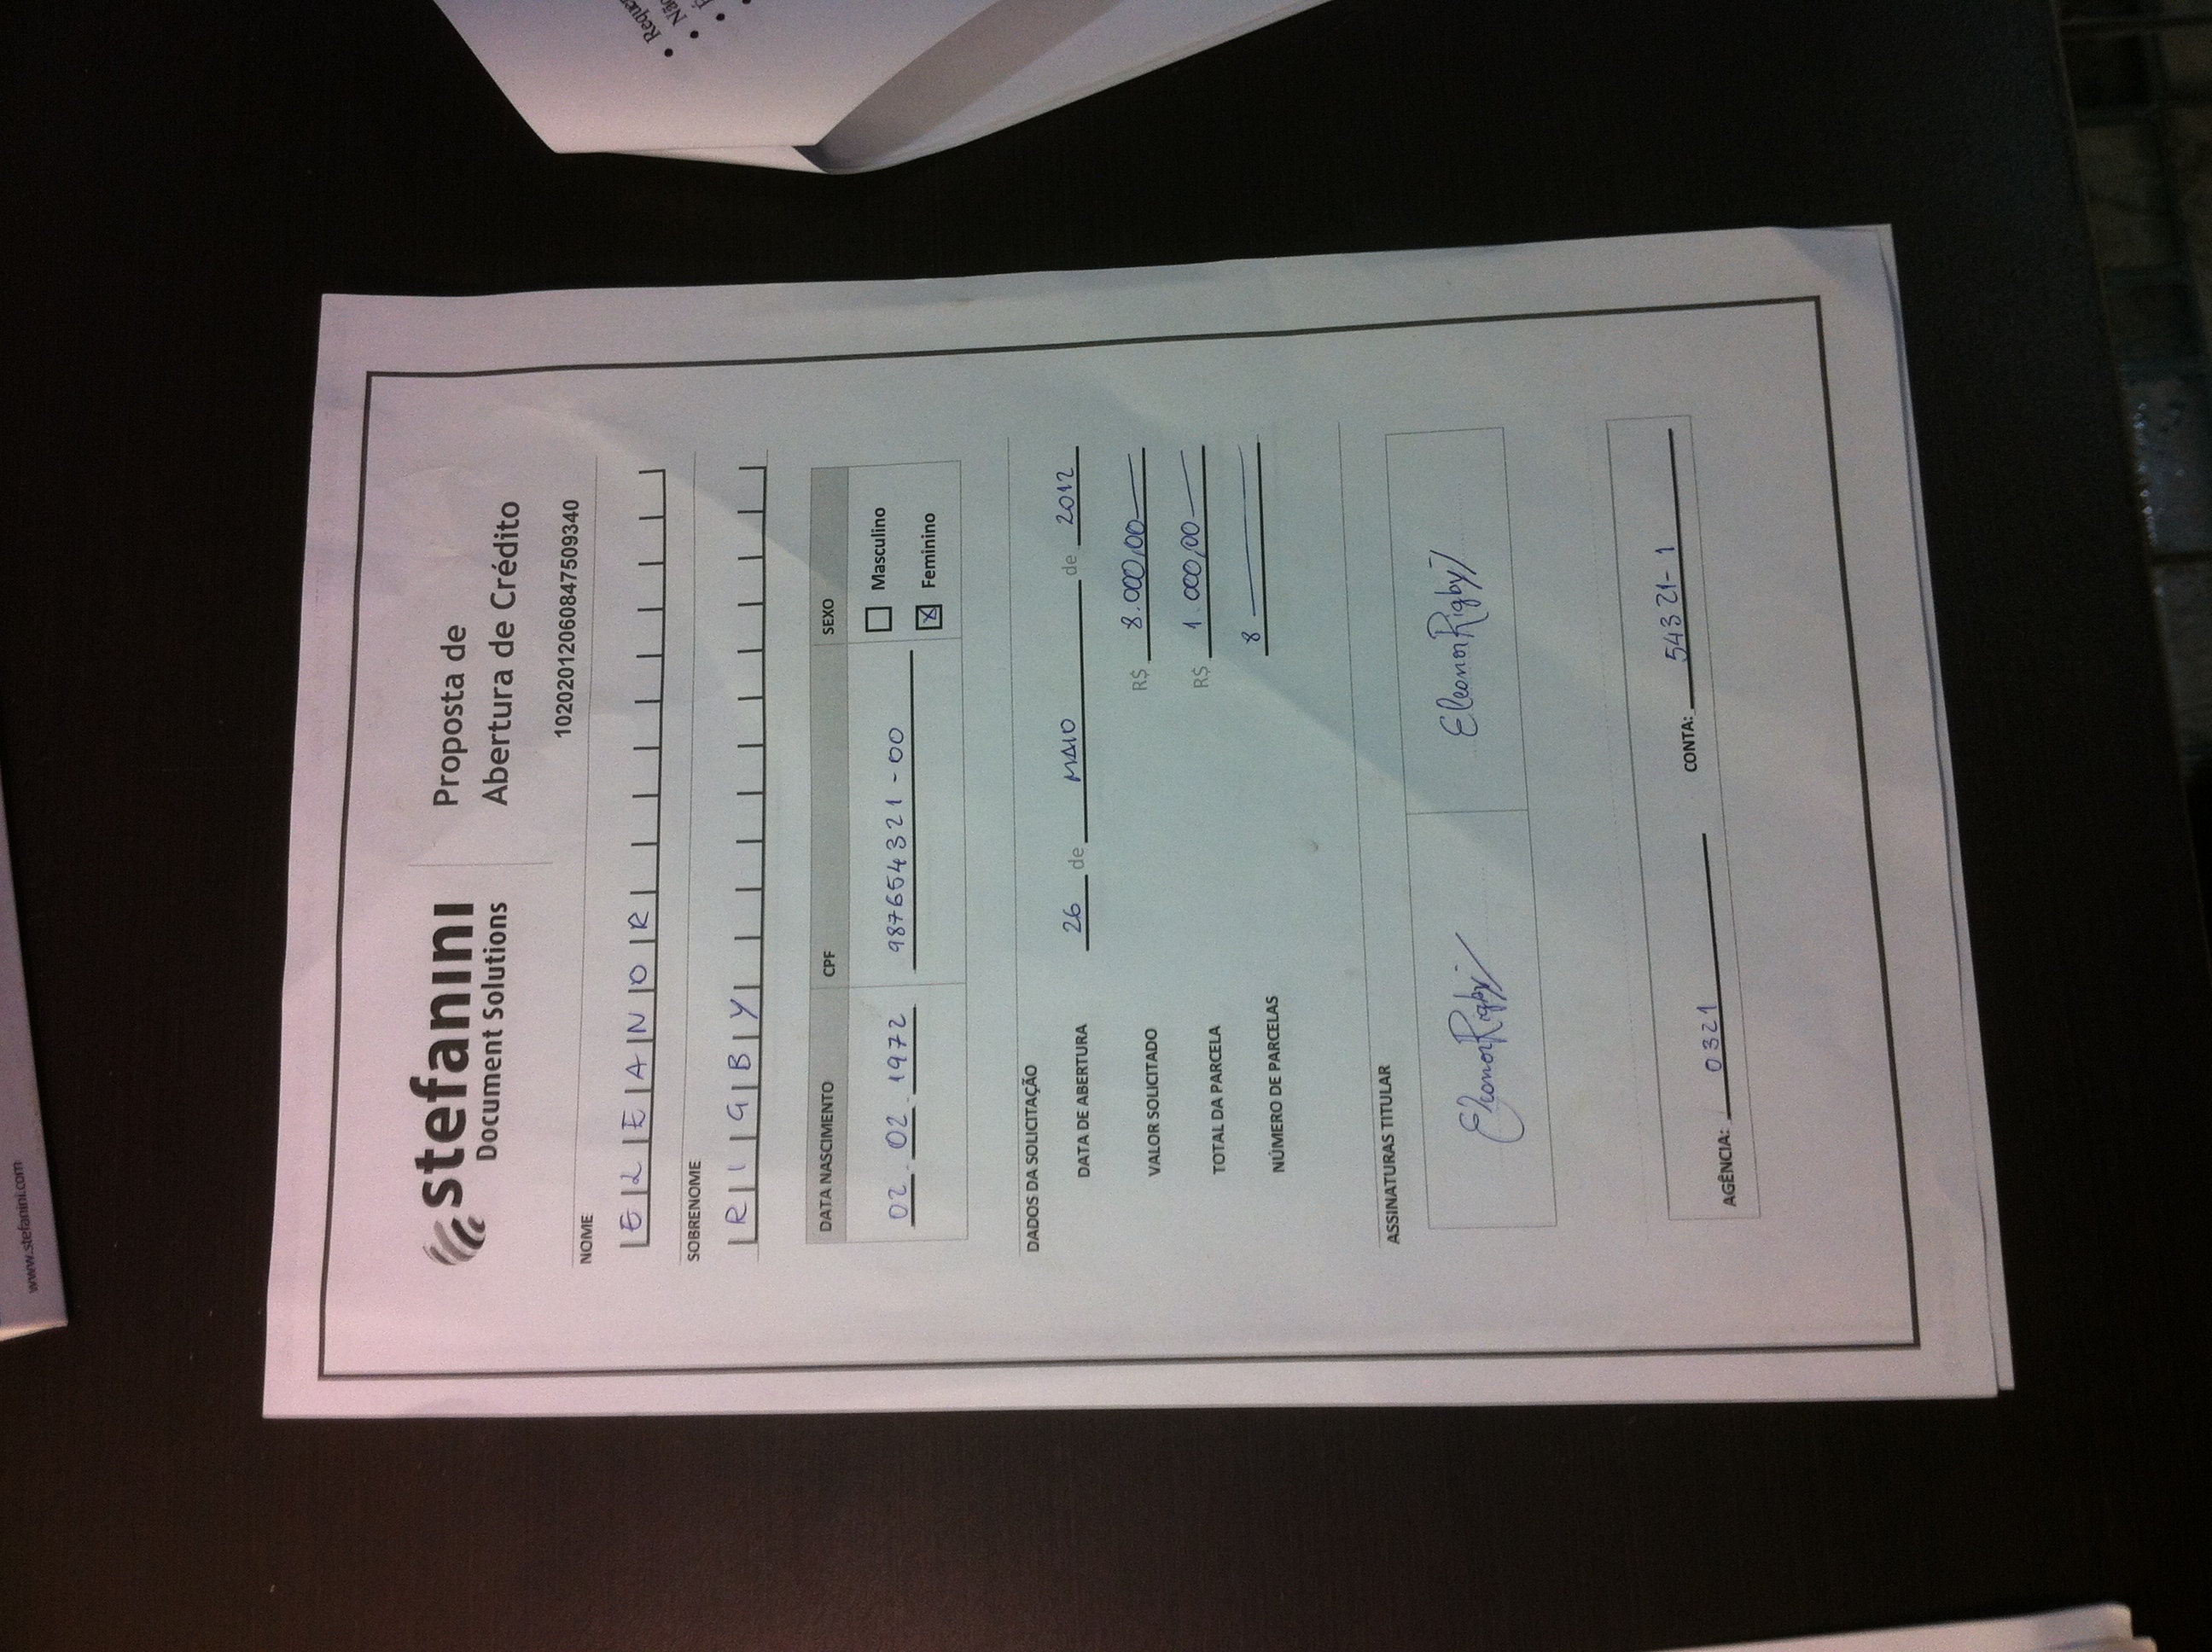 www.stefanini.com
stefanini
Document Solutions
Proposta de
Abertura de Crédito
10202012060847509340
NOME
ELEANOR
SOBRENOME
RIGBY
DATA NASCIMENTO CPF SEXO
02 . 02 . 1972 987654321-00
Masculino
X Feminino
DADOS DA SOLICITAÇÃO
DATA DE ABERTURA 26 de MAIO de 2012
VALOR SOLICITADO R$ 8.000,00
TOTAL DA PARCELA R$ 1.000,00
NÚMERO DE PARCELAS 8
ASSINATURAS TITULAR
Eleonor Rigby Eleonor Rigby
AGÊNCIA: 0321 CONTA: 54321-1